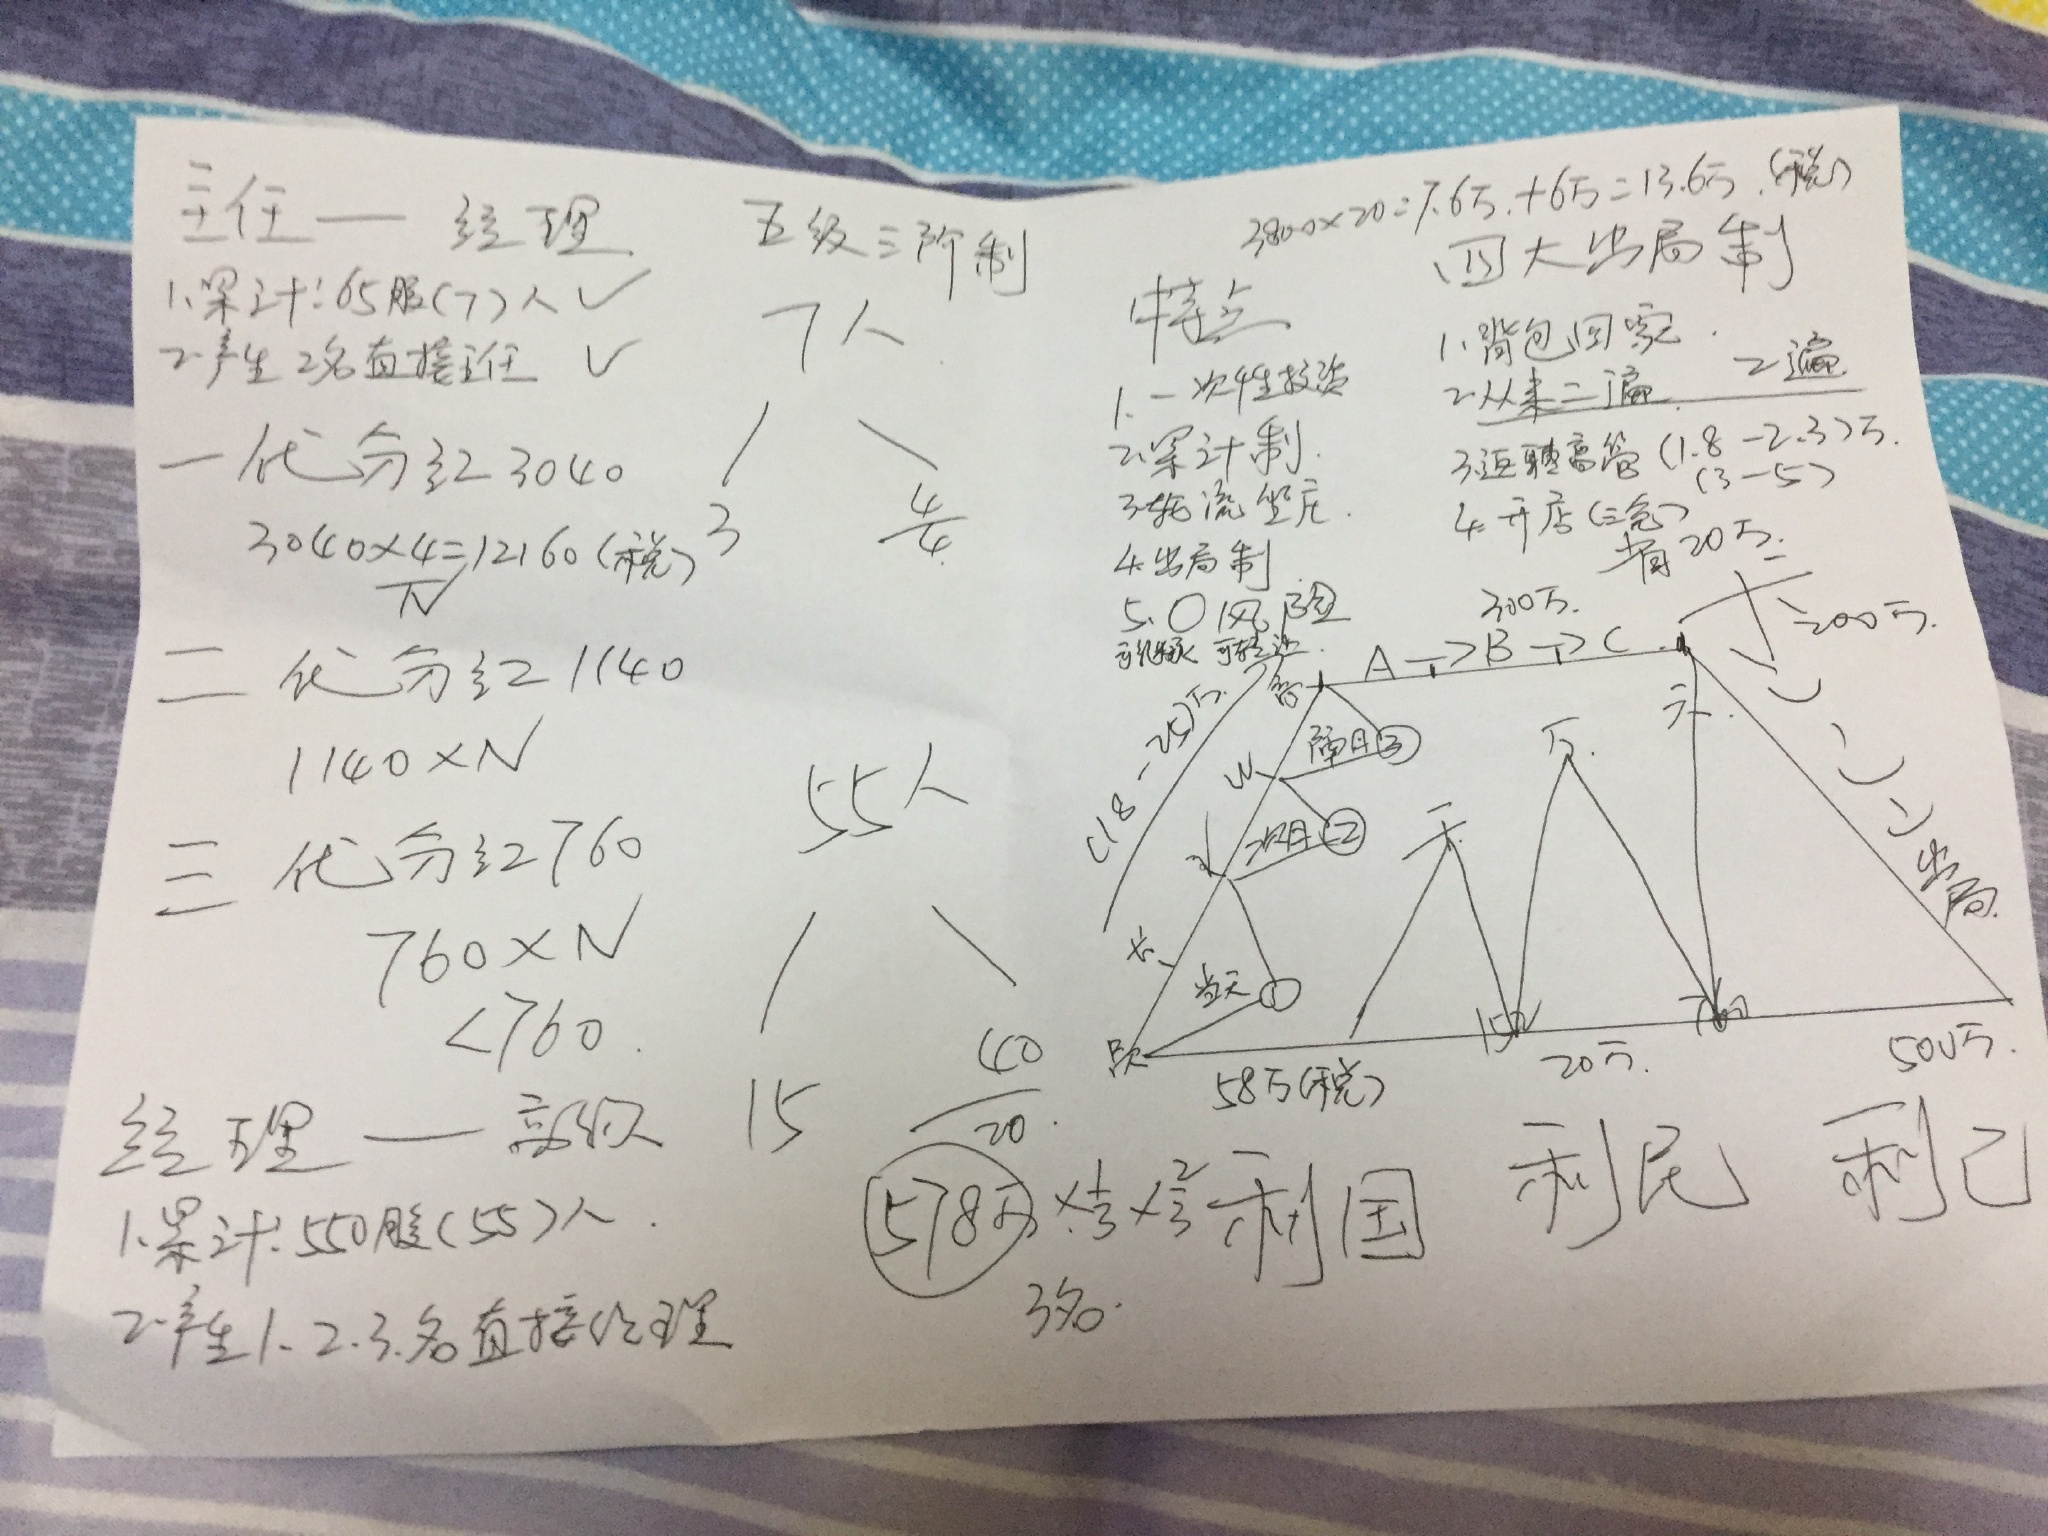 主任——经理
1.累计:65股(7)人✓
2.产生2名直接主任 ✓
一代分红3040
3040×4=12160(税)
N
二代分红1140
1140×N
三代分红760
760×N
<760.
经理——高级
1.累计:550股(55)人.
2.产生1.2.3.名直接经理
五级三阶制
7人
3
4
4
55人
15
40
20.
578万×1/3×2/3
3名.
3800×20=7.6万.+6万=13.6万.(税)
四大出局制
1.背包回家.
2.从来二遍. 2遍
3.返聘高管(1.8-2.3)万.
(3-5)
4.开店(三免)
省20万.
特点
1.一次性投资
2.累计制.
3.轮流坐庄.
4.出局制
5.0风险
300万.
A->B->C
200万.
(18-25)万.
隔月③
次月②
当天①
万.
出局.
58万(税)
20万.
500万.
利国 利民 利己